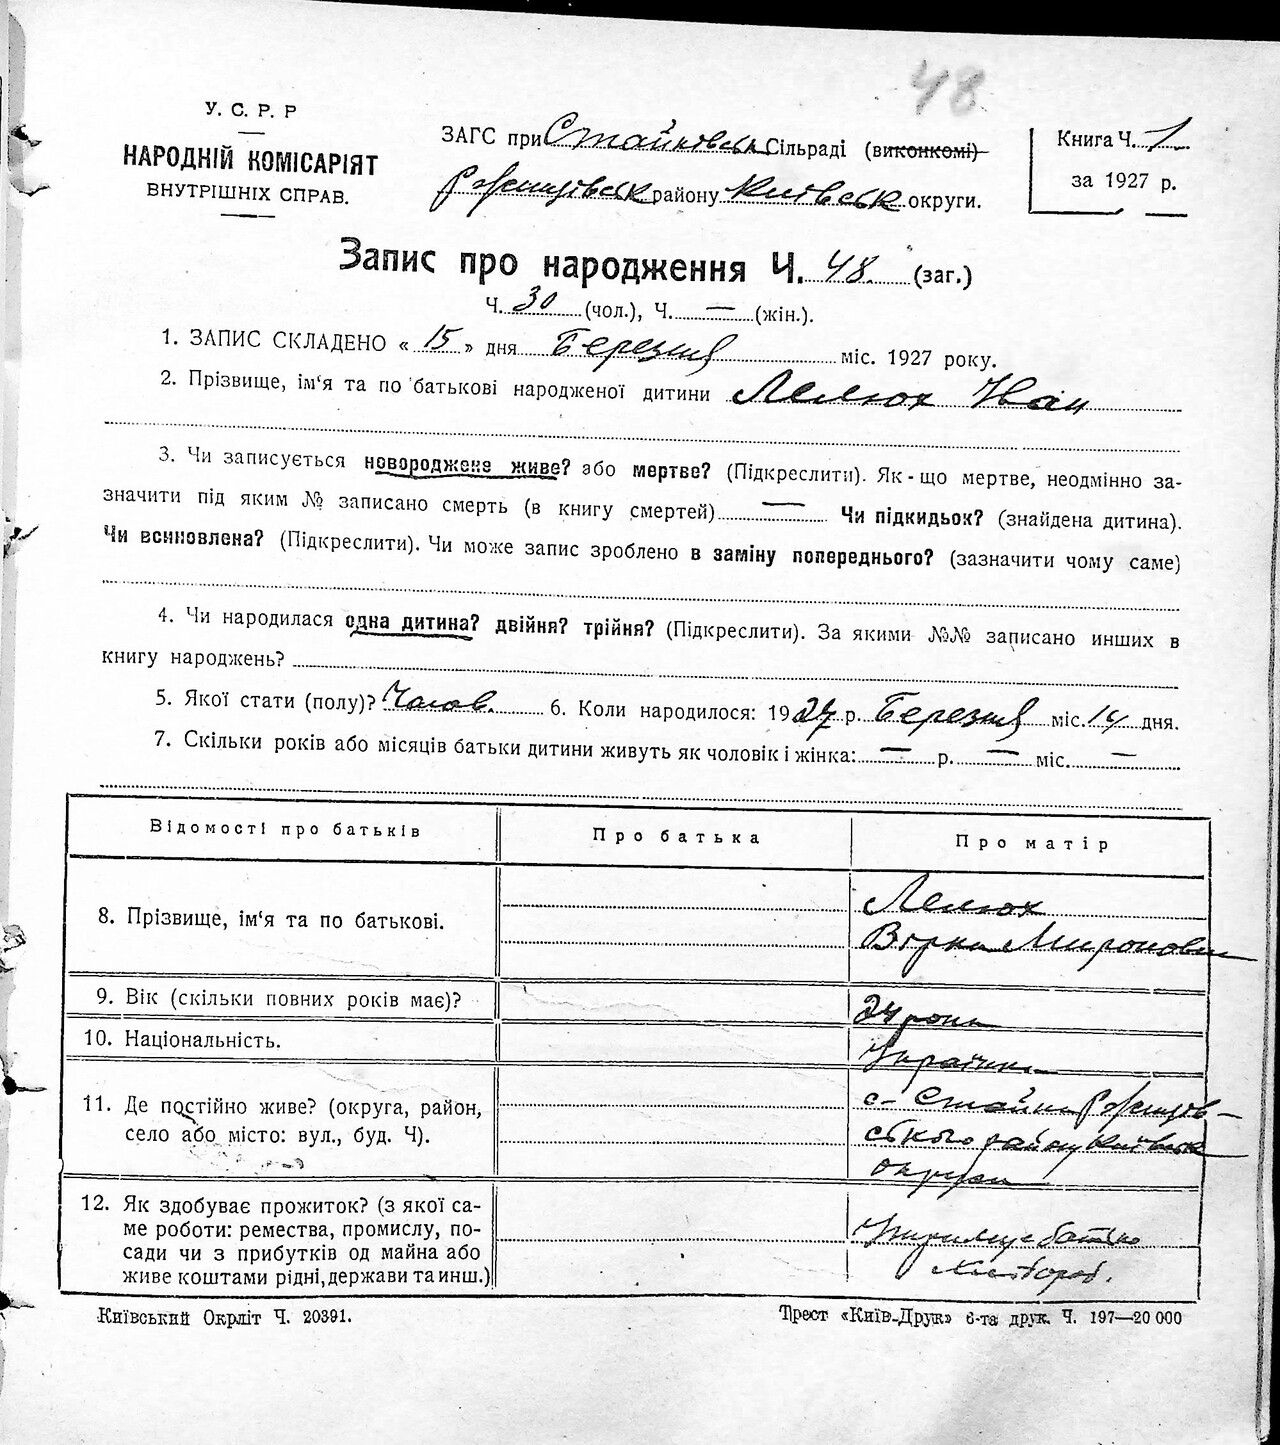 48
У. С. Р. Р
НАРОДНІЙ КОМІСАРІЯТ
ВНУТРІШНІХ СПРАВ.
ЗАГС при Стайковськ Сільраді (виконкомі)
Ржищівськ району Київськ округи.
Книга Ч. 1
за 1927 р.
Запис про народження Ч. 48. (заг.)
Ч. 30 (чол.), Ч. — (жін.).
1. ЗАПИС СКЛАДЕНО « 15 » дня Березня міс. 1927 року.
2. Прізвище, ім‘я та по батькові народженої дитини Лемюх Іван
3. Чи записується новороджене живе? або мертве? (Підкреслити). Як-що мертве, неодмінно за-
значити під яким № записано смерть (в книгу смертей) — Чи підкидьок? (знайдена дитина).
Чи всиновлена? (Підкреслити). Чи може запис зроблено в заміну попереднього? (зазначити чому саме)
4. Чи народилася одна дитина? двійня? трійня? (Підкреслити). За якими №№ записано инших в
книгу народжень?
5. Якої стати (полу)? Чолов. 6. Коли народилося: 1927 р. Березня міс. 14 дня.
7. Скільки років або місяців батьки дитини живуть як чоловік і жінка: — р. — міс. —
Відомості про батьків
Про батька
Про матір
8. Прізвище, ім‘я та по батькові.
Лемюх
Вірка Мироновна
9. Вік (скільки повних років має)?
24 роки
10. Національність.
Українка
11. Де постійно живе? (округа, район,
село або місто: вул., буд. Ч).
с. Стайки Ржищів-
ського району Київськ
округи
12. Як здобуває прожиток? (з якої са-
ме роботи: ремества, промислу, по-
сади чи з прибутків од майна або
живе коштами рідні, держави та инш.)
батько
хлібороб.
Київський Окрліт Ч. 20391.
Трест «Київ-Друк» 6-та друк. Ч. 197—20 000